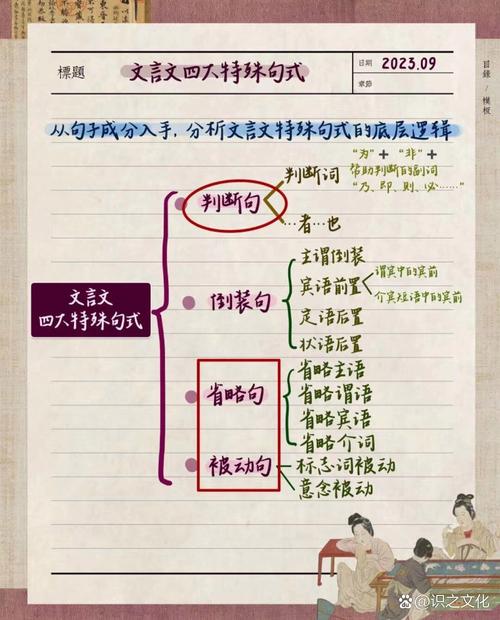 標題
文言文四大特殊句式
日期 2023.09
章節
目錄 / 模板
从句子成分入手，分析文言文特殊句式的底层逻辑
文言文
四大特殊句式
判断句
判断词
“为”+ “非”+
帮助判断的副词
“乃、即、则、必……”
…者…也
倒装句
主谓倒装
宾语前置
谓宾中的宾前
介宾短语中的宾前
定语后置
状语后置
省略句
省略主语
省略谓语
省略宾语
省略介词
被动句
标志词被动
意念被动
识之文化